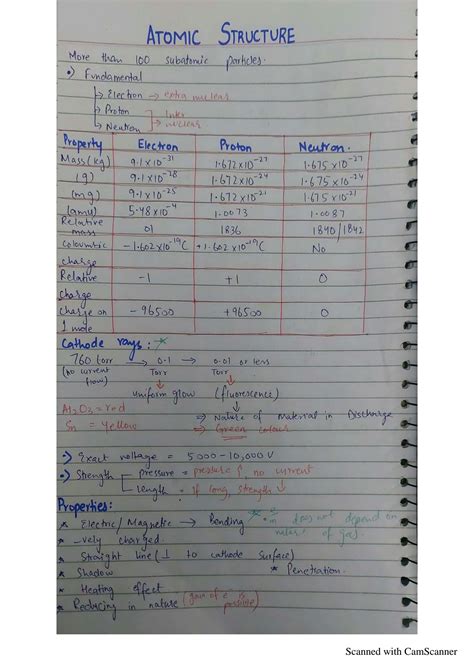 ATOMIC STRUCTURE
More than 100 subatomic particles.
•) Fundamental
↳ Electron → extra nuclear
↳ Proton
↳ Neutron ] → Inter nuclear
Property Electron Proton Neutron.
Mass(kg) 9.1×10⁻³¹ 1.672×10⁻²⁷ 1.675×10⁻²⁷
(g) 9.1×10⁻²⁸ 1.672×10⁻²⁴ 1.675×10⁻²⁴
(mg) 9.1×10⁻²⁵ 1.672×10⁻²¹ 1.675×10⁻²¹
(amu) 5.48×10⁻⁴ 1.0073 1.0087
Relative mass 01 1836 1840/1842
charge -1.602×10⁻¹⁹C +1.602×10⁻¹⁹C No
Relative charge -1 +1 0
charge on 1 mole -96500 +96500 0
Cathode rays: *
760 torr → 0.1 Torr → 0.01 or less Torr
(no current flow)
uniform glow (fluorescence)
→ Nature of Material in Discharge
→ Green colour
Al₂O₃ = red
Sn = Yellow
•) Exact voltage = 5000-10,000 V
•) Strength pressure = pressure ↑ no current
length = if long, strength ↓
Properties:
* Electric/Magnetic → Bending
* e/m does not depend on nature of gas.
* -vely charged.
* Straight line (⊥ to cathode surface)
* Shadow
* Penetration.
* Heating effect
* Reducing in nature (gain of e is possible)